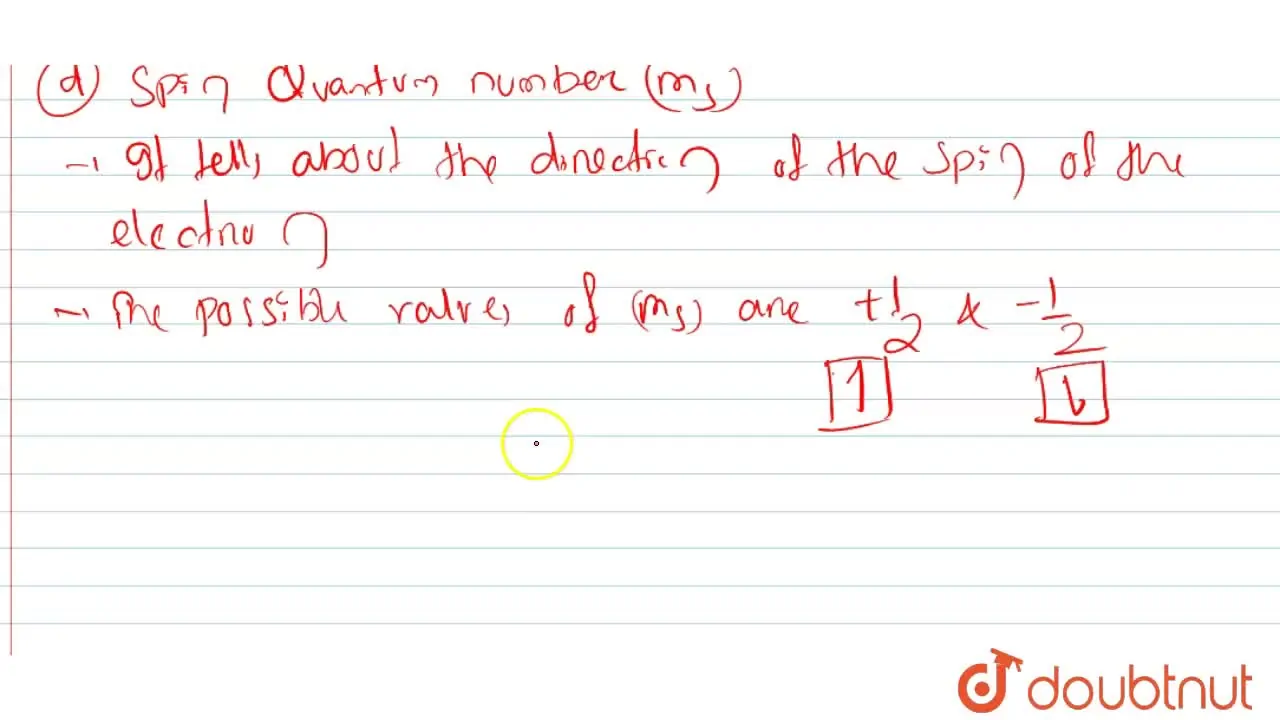 (d) Spin Quantum number (ms)
→ It tells about the direction of the spin of the
electron
→ The possible values of (ms) are +1/2 & -1/2
↑ ↓
doubtnut